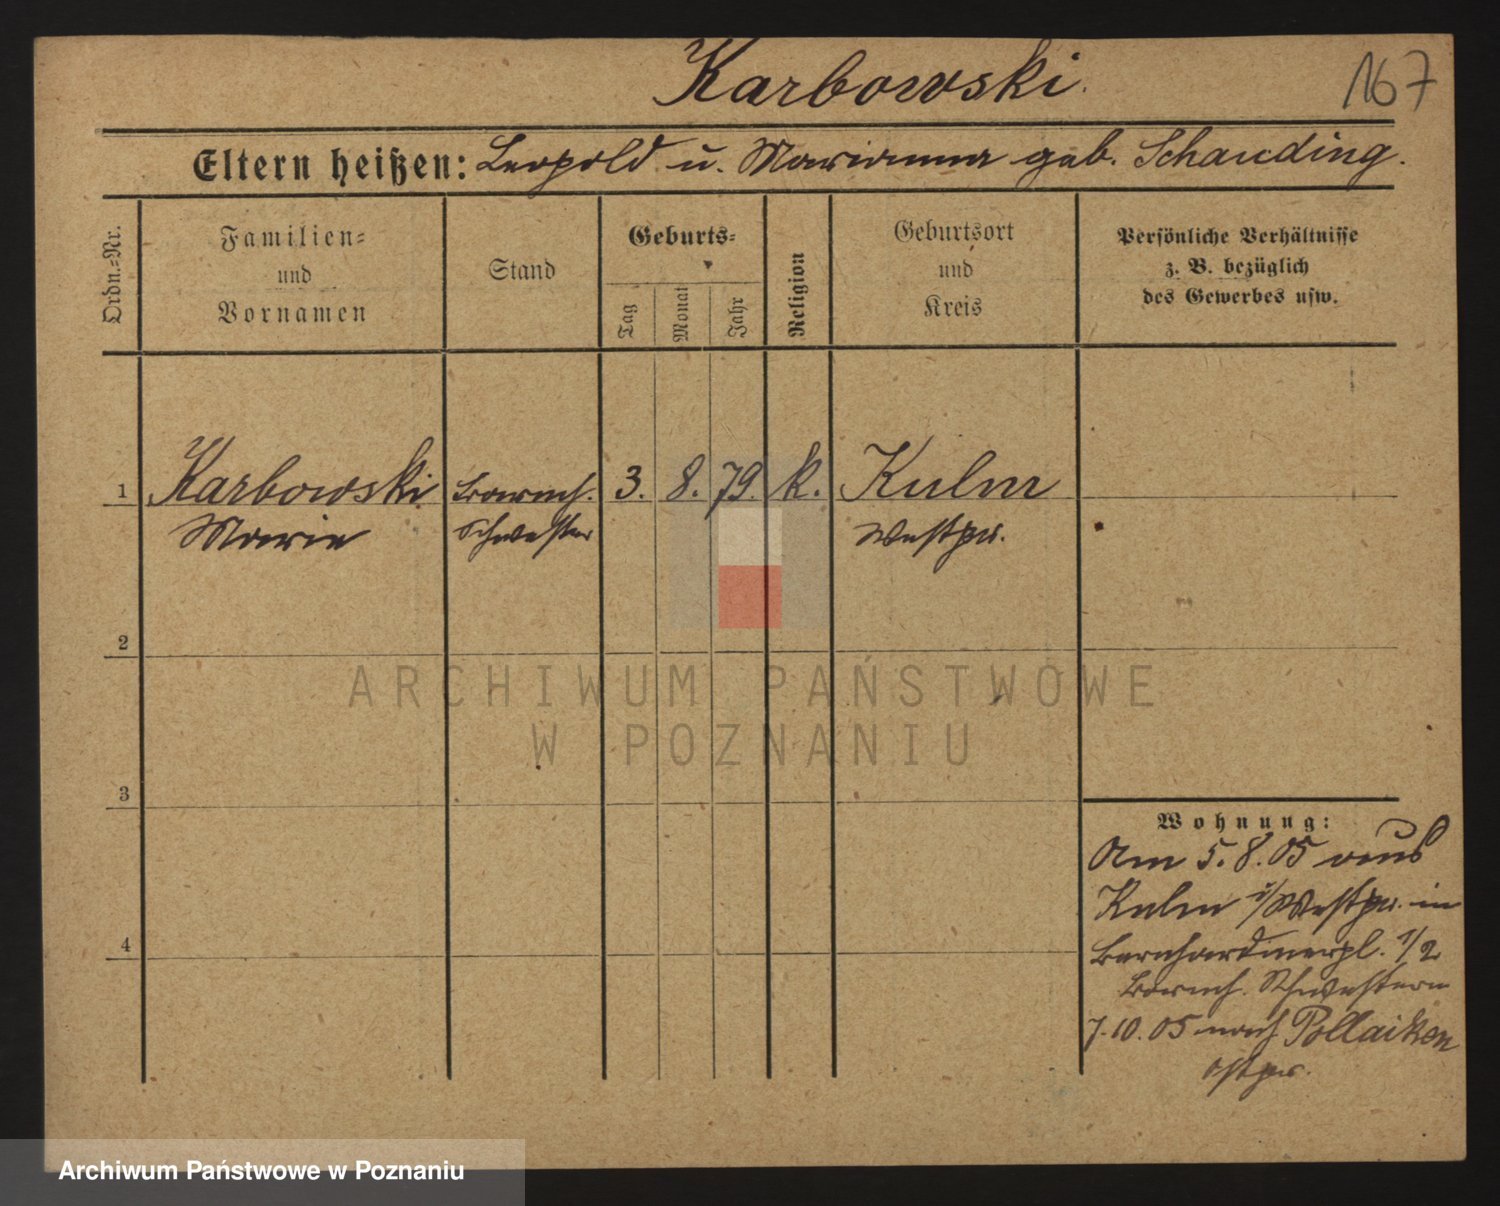 Karbowski.
167
Eltern heißen: Leopold u. Marianna geb. Schauding.
Ordn.-Nr.
Familien- und Vornamen
Stand
Geburts-
Tag
Monat
Jahr
Religion
Geburtsort und Kreis
Persönliche Verhältnisse z. B. bezüglich des Gewerbes usw.
1 Karbowski Barmh. 3. 8. 79. k. Kulm
Marie Schwester Westpr.
2
ARCHIWUM PAŃSTWOWE
W POZNANIU
3
4
Wohnung:
Am 5.8.05 aus
Kulm i/Westpr. in
Bernhardinerpl. 1/2
Barmh. Schwestern
7.10.05 nach Pollaiken
Ostpr.
Archiwum Państwowe w Poznaniu